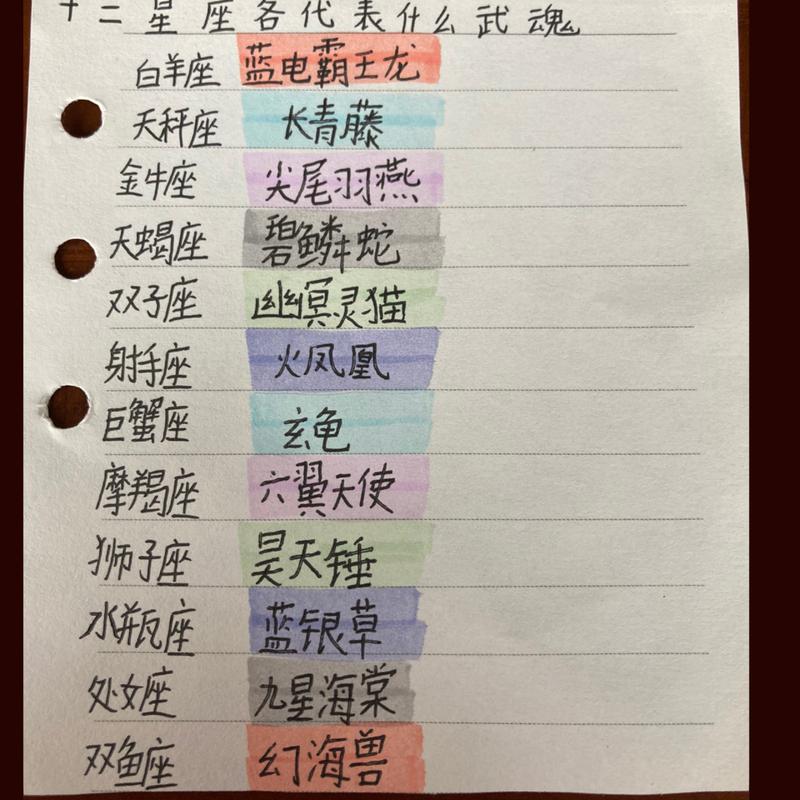 十二星座各代表什么武魂
白羊座 蓝电霸王龙
天秤座 长青藤
金牛座 尖尾羽燕
天蝎座 碧鳞蛇
双子座 幽冥灵猫
射手座 火凤凰
巨蟹座 玄龟
摩羯座 六翼天使
狮子座 昊天锤
水瓶座 蓝银草
处女座 九星海棠
双鱼座 幻海兽